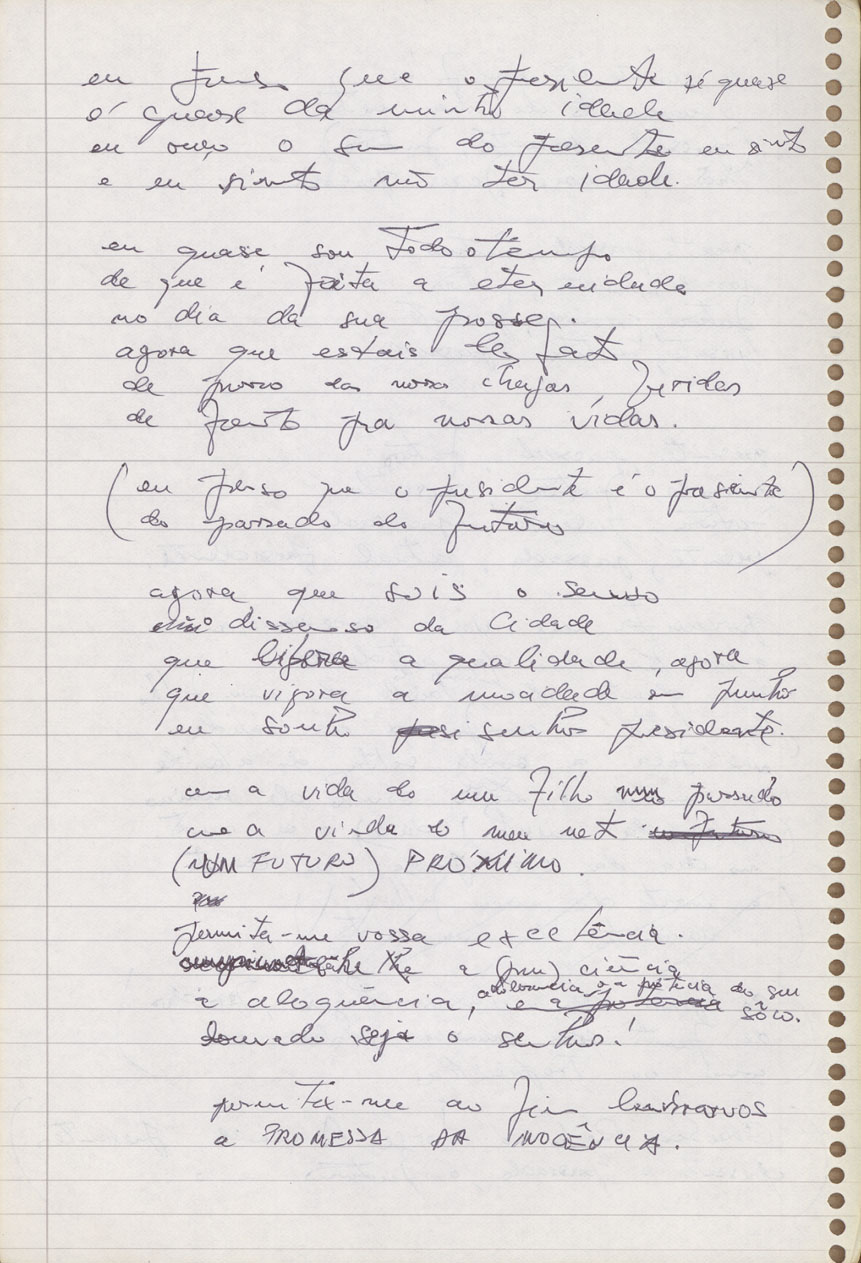 eu penso que o presidente já quase
é quase da minha idade
eu ouço o som do presente eu sinto
e eu sinto não ter idade.
eu quase sou todo o tempo
de que é feita a eternidade
no dia da sua posse.
agora que estais de fato
de posse das nossas chagas, feridas
de pronto pra nossas vidas.
(eu penso que o presidente é o presente
do passado do futuro)
agora que sois o senso
dissenso da cidade
que a qualidade, agora
que vigora a moçidade em junho
eu sonho senhor presidente.
com a vida do meu filho passado
com a vinda do meu neto
(NUM FUTURO) PRÓXIMO.
permita-me vossa excelência.
lhe a (pru) ciência
a eloquência, e a potência do seu
sôco.
louvado seja o senhor!
permita-me ao fim lembrarvos
a PROMESSA DA INOCÊNCIA.